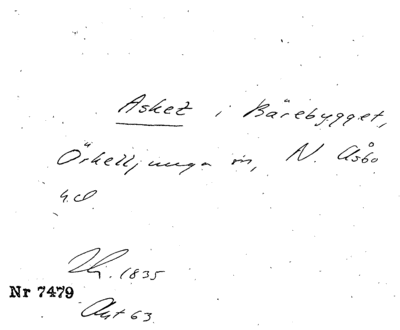 Asket i Bårebygget,
Örkelljunga sn, N. Åsbo
h.d
1835
Nr 7479
Akt 63